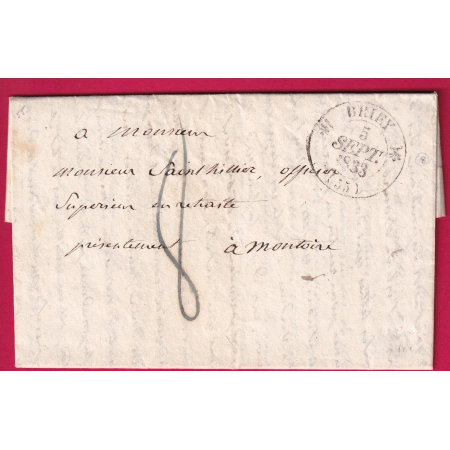 BRIEY
5
SEPT.
1838
(55)
à Monsieur
Monsieur Saint hillier, officier
Superieur en retraite
présentement à Montoire
8